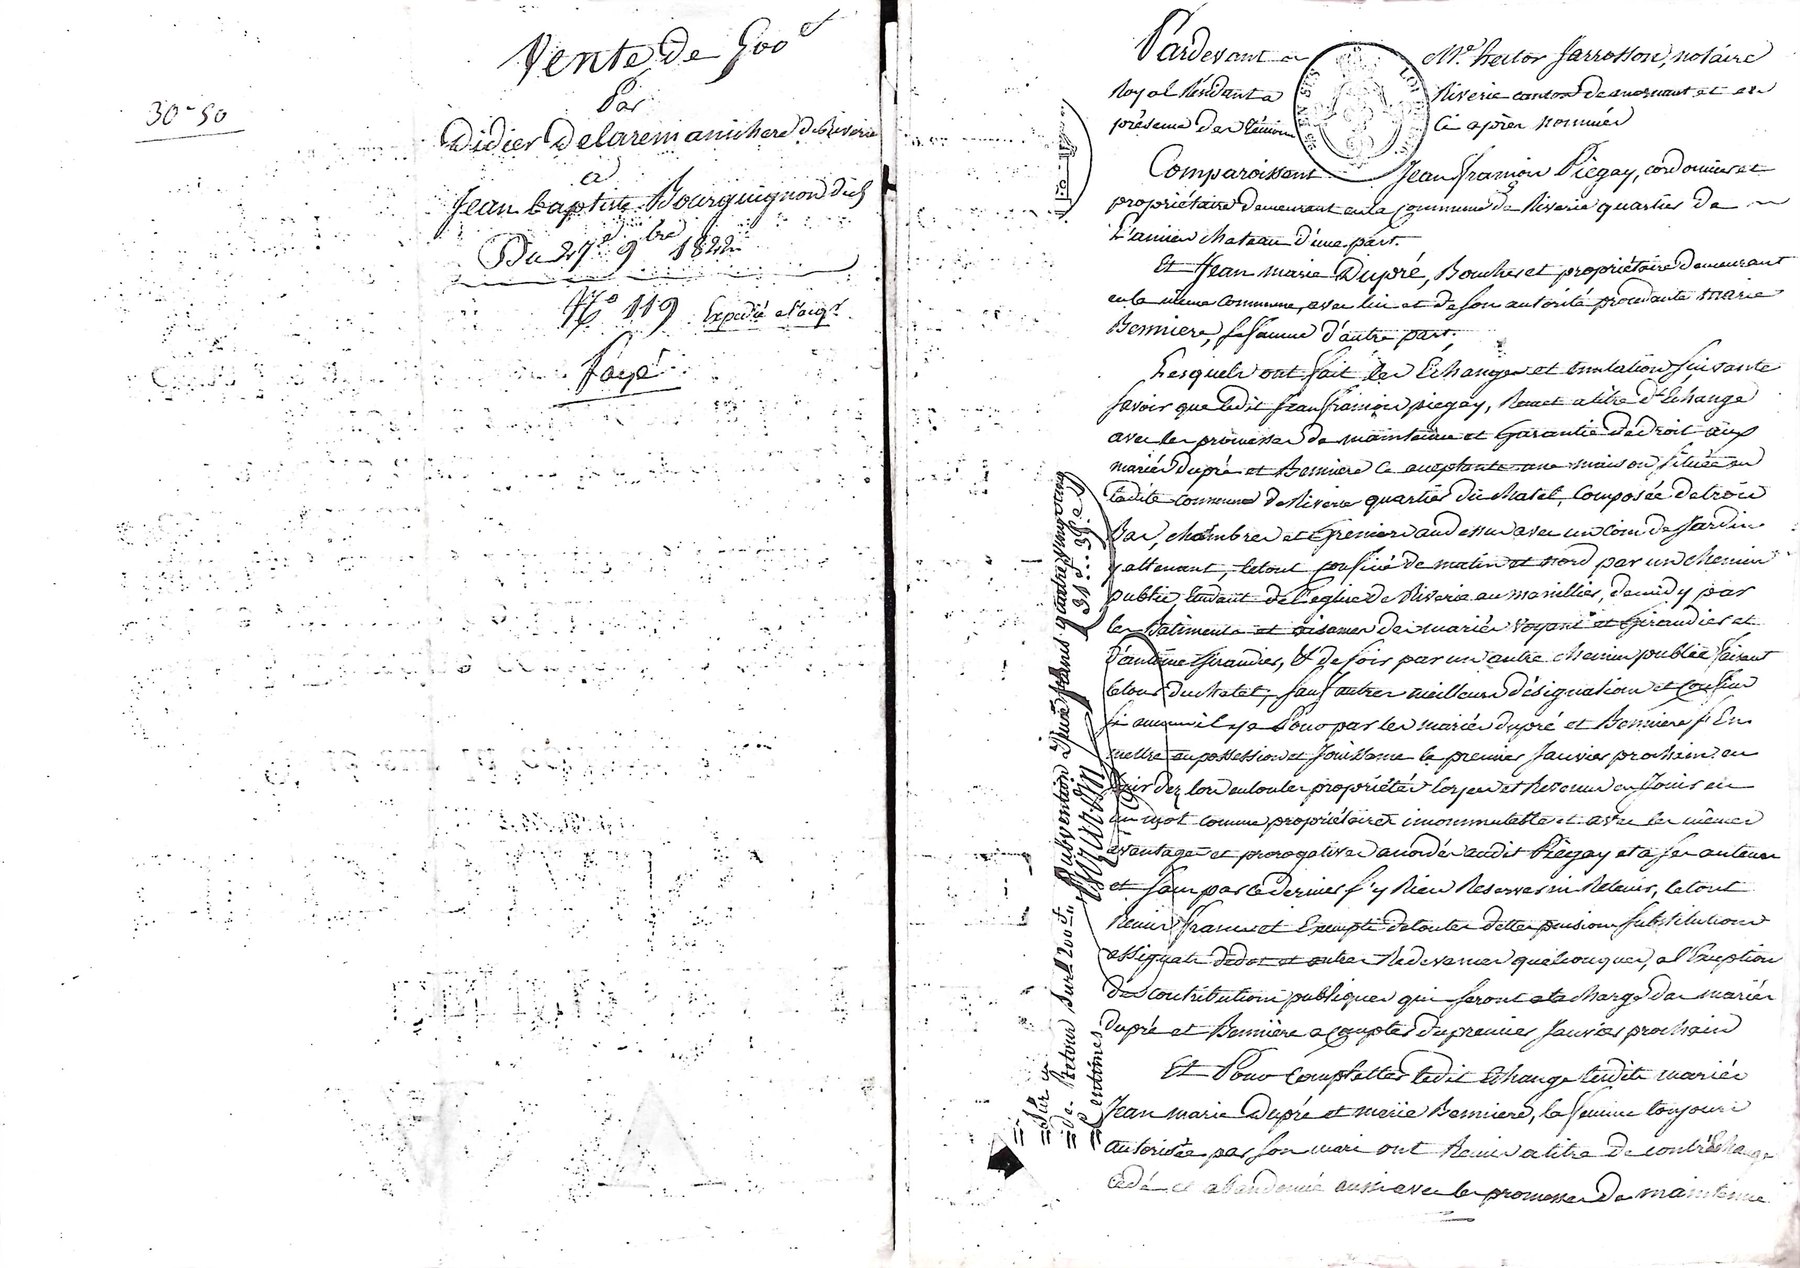 Vente de 500 f
Par
Didier Delaremanichere de Riverie
a
Jean baptiste Bourguignon dit
Du 27e 9bre 1822
No 119 Expedié a l'aiqr
Payé
30 - 50
Pardevant Me hector Jarrosson, notaire
Royal Résidant a Riverie canton de mornant et en
présence des témoins ci après nommés
Comparoissent Jean françois Piégay, cordonnier et
propriétaire demeurant en la commune de Riverie quartier de
L'ancien chateau d'une part.
Et Jean marie Dupré, Boucher et propriétaire demeurant
en la même commune, avec lui et de son autorité procédante marie
Bonniere, sa femme d'autre part,
Lesquels ont fait les Echanges et mutations suivante
savoir que ledit Jean françois piegay, Remet a titre d'Echange
avec les promesses de maintenue et Garantie de droit aux
mariés dupré et Bonniere ce acceptants une maison située en
ladite commune de Riverie quartier du chatel, composée de trois
Bas, chambres et Greniers au dessus avec un coin de Jardin
y attenant, le tout confiné de matin et nord par un chemin
public tendant de l'eglise de Riverie au marillier, de midy par
les Batiments et aisances des mariés voyant et Giraudier et
d'antoine Giraudier, & de soir par un autre chemin public faisant
le tour du chatel, sauf autres meilleure désignation et confins
si aucun il y a Pour par les mariés dupré et Bonniere s'En
mettre en possession et Jouissance le premier Janvier prochain en
des lors en toutes propriétés loyer et Revenu en Jouir en
un mot comme propriétaires incommutable et avec les mêmes
avantages et prerogatives accordés audit Piégay et a ses auteurs
et sans par ce dernier s'y Rien Reserver ni Retenir, le tout
Remis franc et Exempt de toutes dettes pensions substitutions
assignats de dot et autres Redevances quelconques, a l'Exception
des contributions publiques qui seront a la charge des mariés
dupré et Bonniere a compter du premier Janvier prochain
Et Pour completter ledit Echange lesdits mariés
Jean marie Dupré et marie Bonniere, la femme toujours
autorisée par son mari ont Remis a titre de contréchange
cedé et abandonné aussi avec les promesses de maintenue
de Retour sur 1200 f. Subvention
centimes